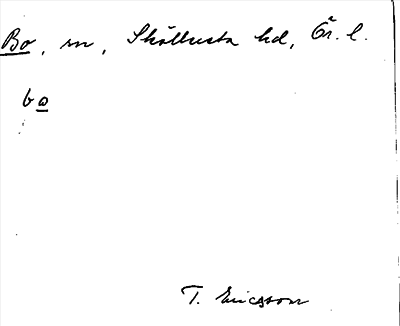 Bo, sn, Sköllersta hd, Ör. l.
bo
T. Ericsson